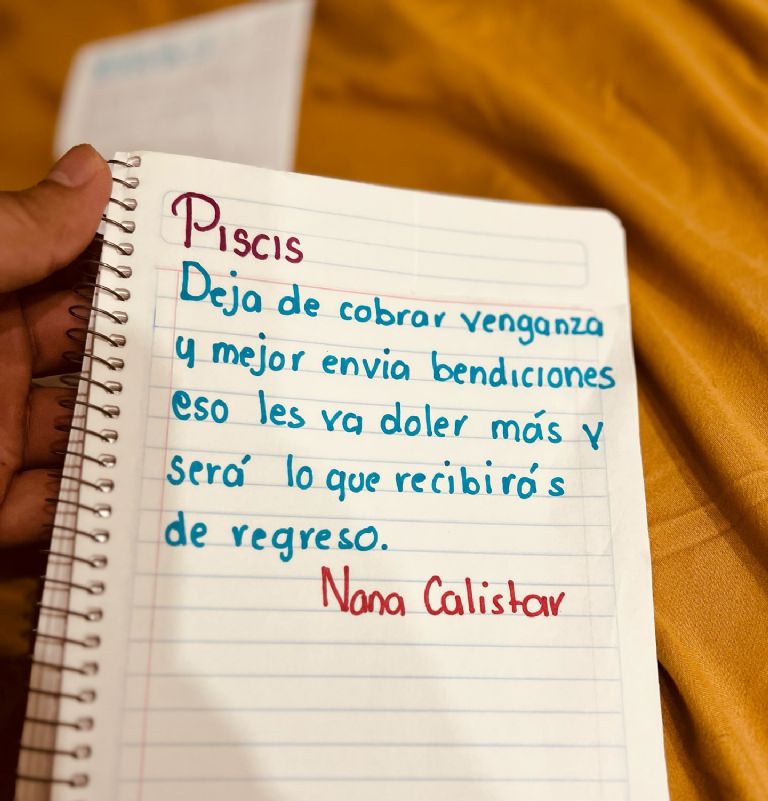 Piscis
Deja de cobrar venganza
y mejor envia bendiciones
eso les va doler más y
será lo que recibirás
de regreso.
Nana Calistar